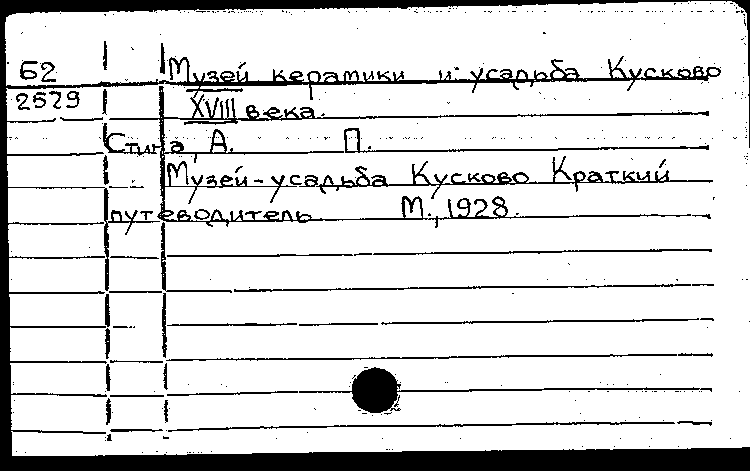 Б2 Музей керамики и усадьба Кусково
2579 XVIII века.
Стина, А. П.
Музей-усадьба Кусково Краткий
путеводитель М., 1928.